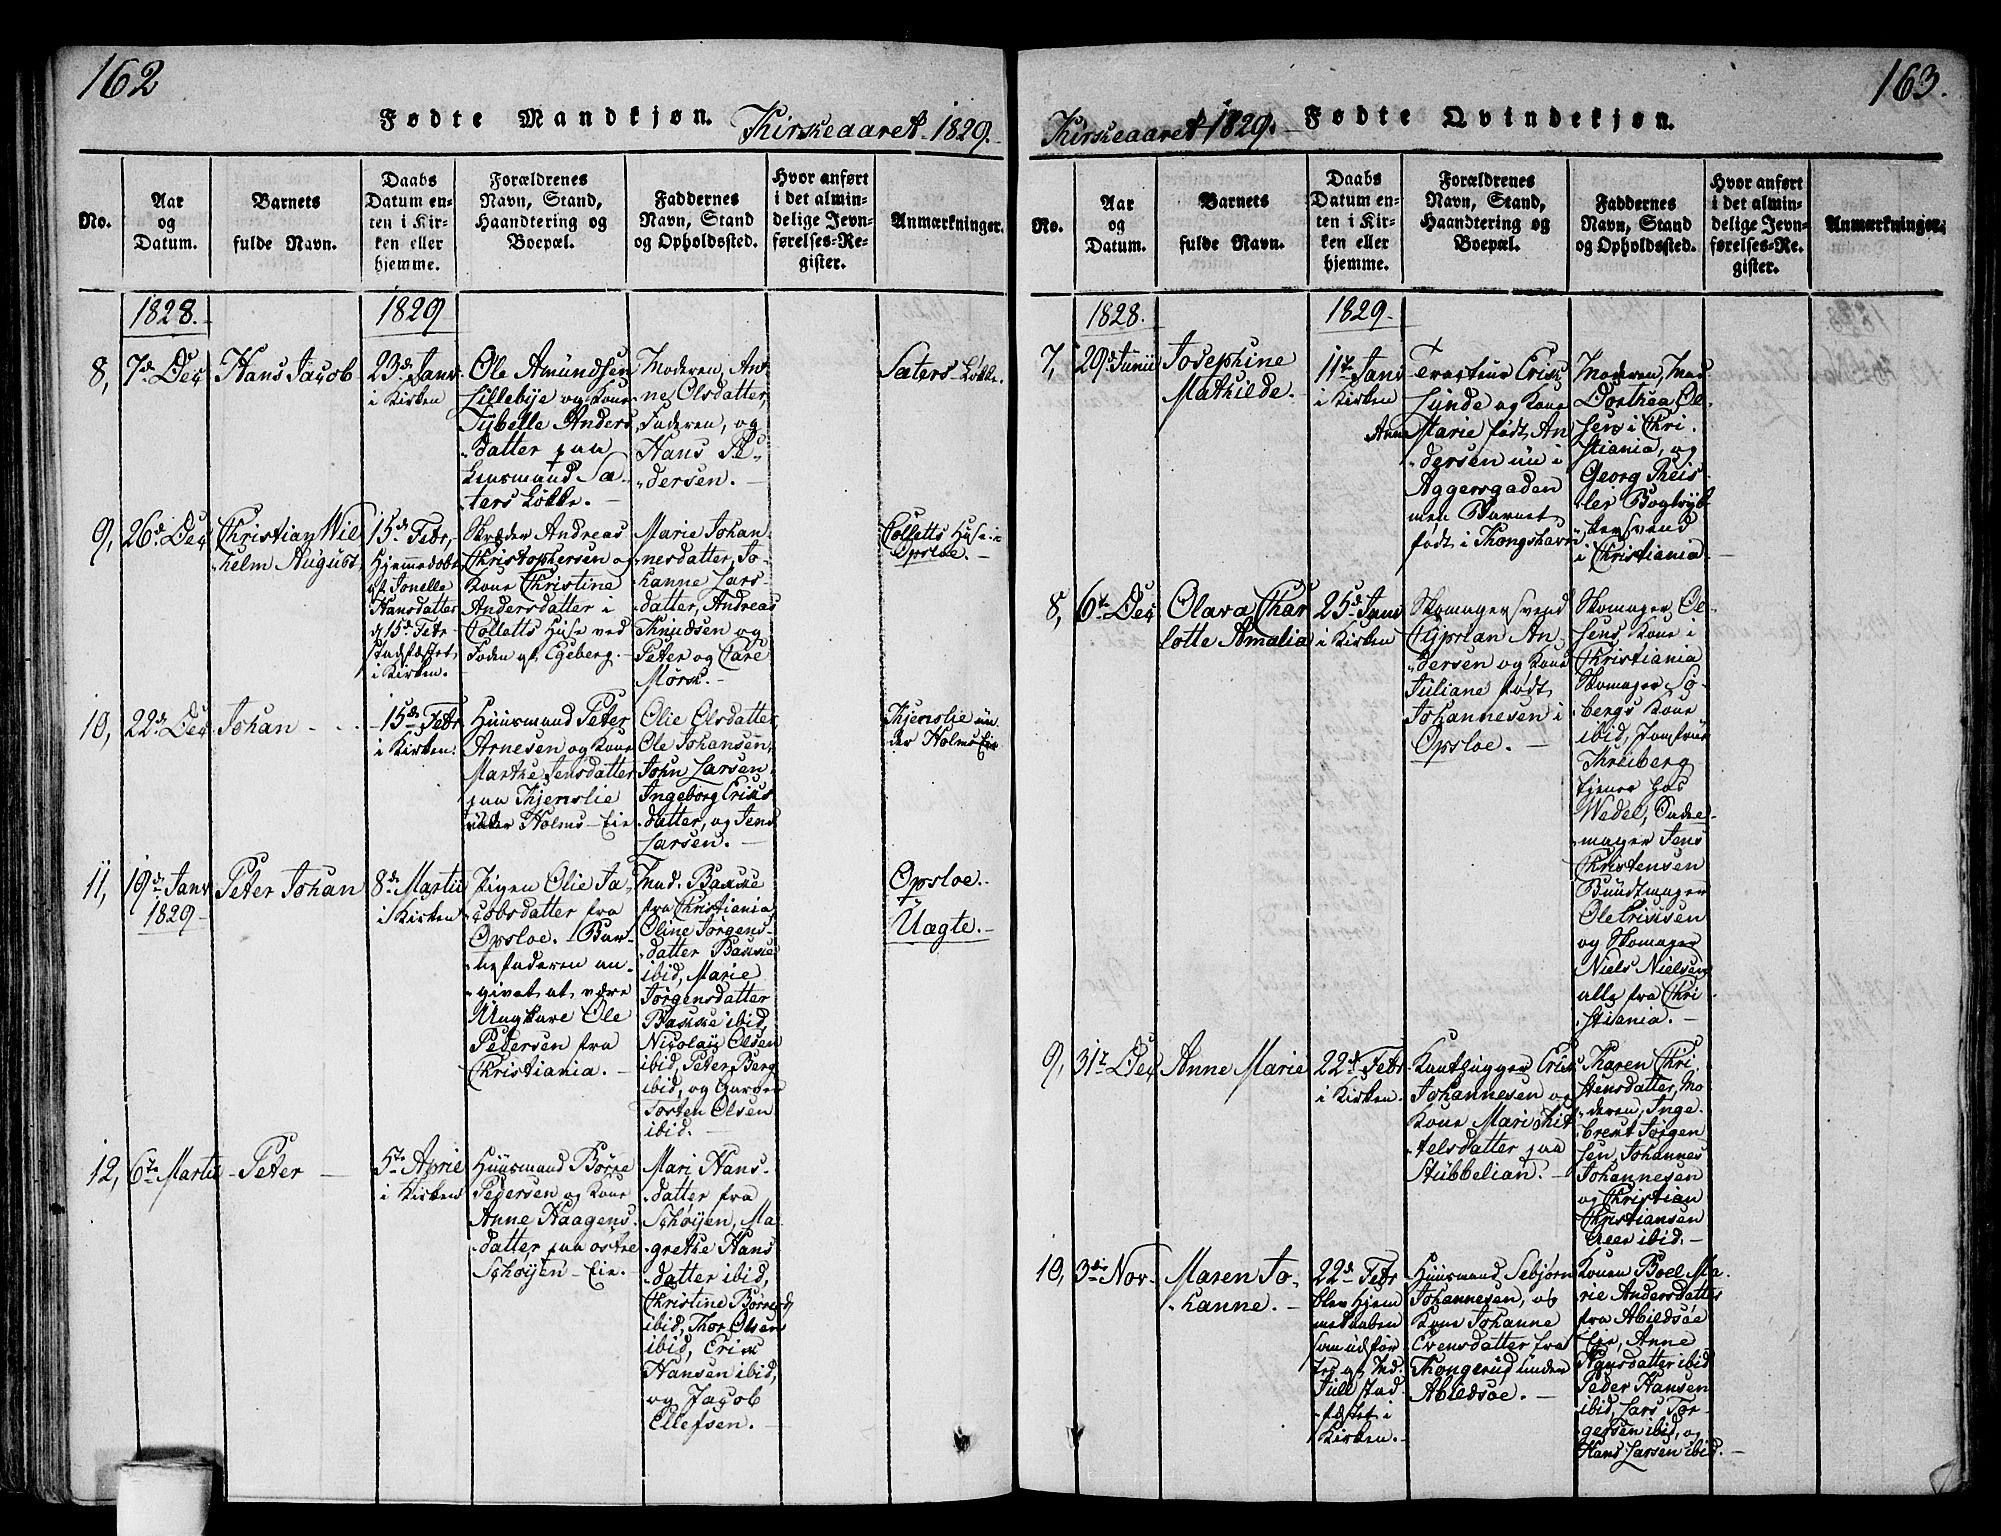 162
Fødte Mandkjøn. Kirkeaaret 1829.
No.
Aar
og
Datum.
Barnets
fulde Navn.
Daabs
Datum en-
ten i Kir-
ken eller
hjemme.
Forældrenes
Navn, Stand,
Haandtering og
Boepæl.
Faddernes
Navn, Stand
og Opholdssted.
Hvor anført
i det almin-
delige Jevn-
førelses-Re-
gister.
Anmærkninger.
1828.
1829
8,
7de Dec
Hans Jacob
23de Janr
i Kirken
Ole Amundsen
Lillebye og Kone
Sybelle Anders
datter paa
Lensmand Sæ-
ters Løkke.
Moderen, An-
ne Olsdatter,
Faderen, og
Hans Pe-
dersen.
Sæters Løkke.
9,
26de Dec
Christian Wil
helm August
15de Febr,
Hjemmedøbt
af Jonelle
Hansdatter
d 15de Febr
stadfæstet
i Kirken.
Skræder Andreas
Christophersen og
Kone Christine
Andersdatter i
Colletts Huse ved
Foden af Egeberg.
Marie Johan
nesdatter, Jo-
hanne Lars-
datter, Andreas
Knudsen og
Peter og Care
Mørk.
Colletts Huse i
Opsloe.
10,
22de Dec
Johan
15de Febr
i Kirken.
Huusmand Peter
Arnesen og Kone
Marthe Jensdatter
paa Kjemslie
under Holms-Eie
Olie Olsdatter,
Ole Johansen,
John Larsen,
Ingeborg Eriks
datter, og Jens
Larsen.
Kjemslie un
der Holms Eie
11,
19de Janr
1829
Peter Johan
8de Martii
i Kirken
Pigen Olie Ja-
cobsdatter fra
Opsloe. Bar-
nefaderen an-
givet at være
Ungkarl Ole
Pedersen fra
Christiania.
Mad. Bakke
fra Christiania,
Oline Jørgens-
datter Bakke
ibid, Marie
Jørgensdatter
Bakke ibid,
Nicolay Olsen
ibid, Peter Berg
ibid, og
Torsten Olsen
ibid.
Opsloe.
Uægte.
12,
6te Martii
Peter
5te April
i Kirken
Huusmand Børre
Pedersen og Kone
Anne Haagens
datter paa østre
Schøyen-Eie.
Mari Hans-
datter fra
Schøyen, Ma-
grethe Hans
datter ibid,
Christine Børresd
ibid, Thor Olsen
ibid, Erik
Hansen ibid,
og Jacob
Ellefsen.
163.
Kirkeaaret 1829. Fødte Qvindekjøn.
No.
Aar
og
Datum.
Barnets
fulde Navn.
Daabs
Datum en-
ten i Kir-
ken eller
hjemme.
Forældrenes
Navn, Stand,
Haandtering og
Boepæl.
Faddernes
Navn, Stand
og Opholdssted.
Hvor anført
i det almin-
delige Jevn-
førelses-Re-
gister.
Anmærkninger.
1828.
1829.
7,
29de Junii
Josephine
Mathilde.
11te Janr
i Kirken
Erik
Lunde og Kone
Anne Marie født An
dersen nu i
Aggersgaden
men Barnet
født i Kongshavn
Moderen, Mad
Dorthea Ol-
sen i Chri-
stiania, og
Georg Theis-
ler Bogtryk
kersvend
i Christiania
8,
6te Dec
Olava Char
lotte Amalia
25de Janr
i Kirken
Skomagersvend
Cyprian An-
dersen og Kone
Juliane født
Johannesen i
Opsloe.
Skomager Ol-
sens Kone i
Christiania
Skomager So-
bergs Kone
ibid, Jomfrue
Kreiberg
tjener hos
Wedel,
mager Jens
Christensen
Bundtmager
Ole Eriksen
og Skomager
Niels Nielsen
alle fra Chri-
stiania.
9,
31te Dec
Anne Marie
22de Febr
i Kirken.
Erik
Johannesen og
Kone Mari Kit
telsdatter paa
Stubbelian.
Karen Chri
stensdatter, Mo
deren, Inge-
bret Jørgen
sen, Johannes
Johannesen
og Christian
Christiansen
Aeer ibid.
10,
3die Nov
Maren Jo-
hanne.
22de Febr
blev Hjem
medaaben
som udfør
tes af Mad.
Juell stad
fæstet i
Kirken.
Huusmand Sebjørn
Johannesen, og
Kone Johanne
Evensdatter fra
Kongerud under
Abildsøe.
Konen Boel Ma-
rie Andersdatter
fra Abildsøe
Eie, Anne
Hansdatter ibid
Peder Hansen
ibid, Lars Tor-
gersen ibid, og
Hans Larsen ibid.